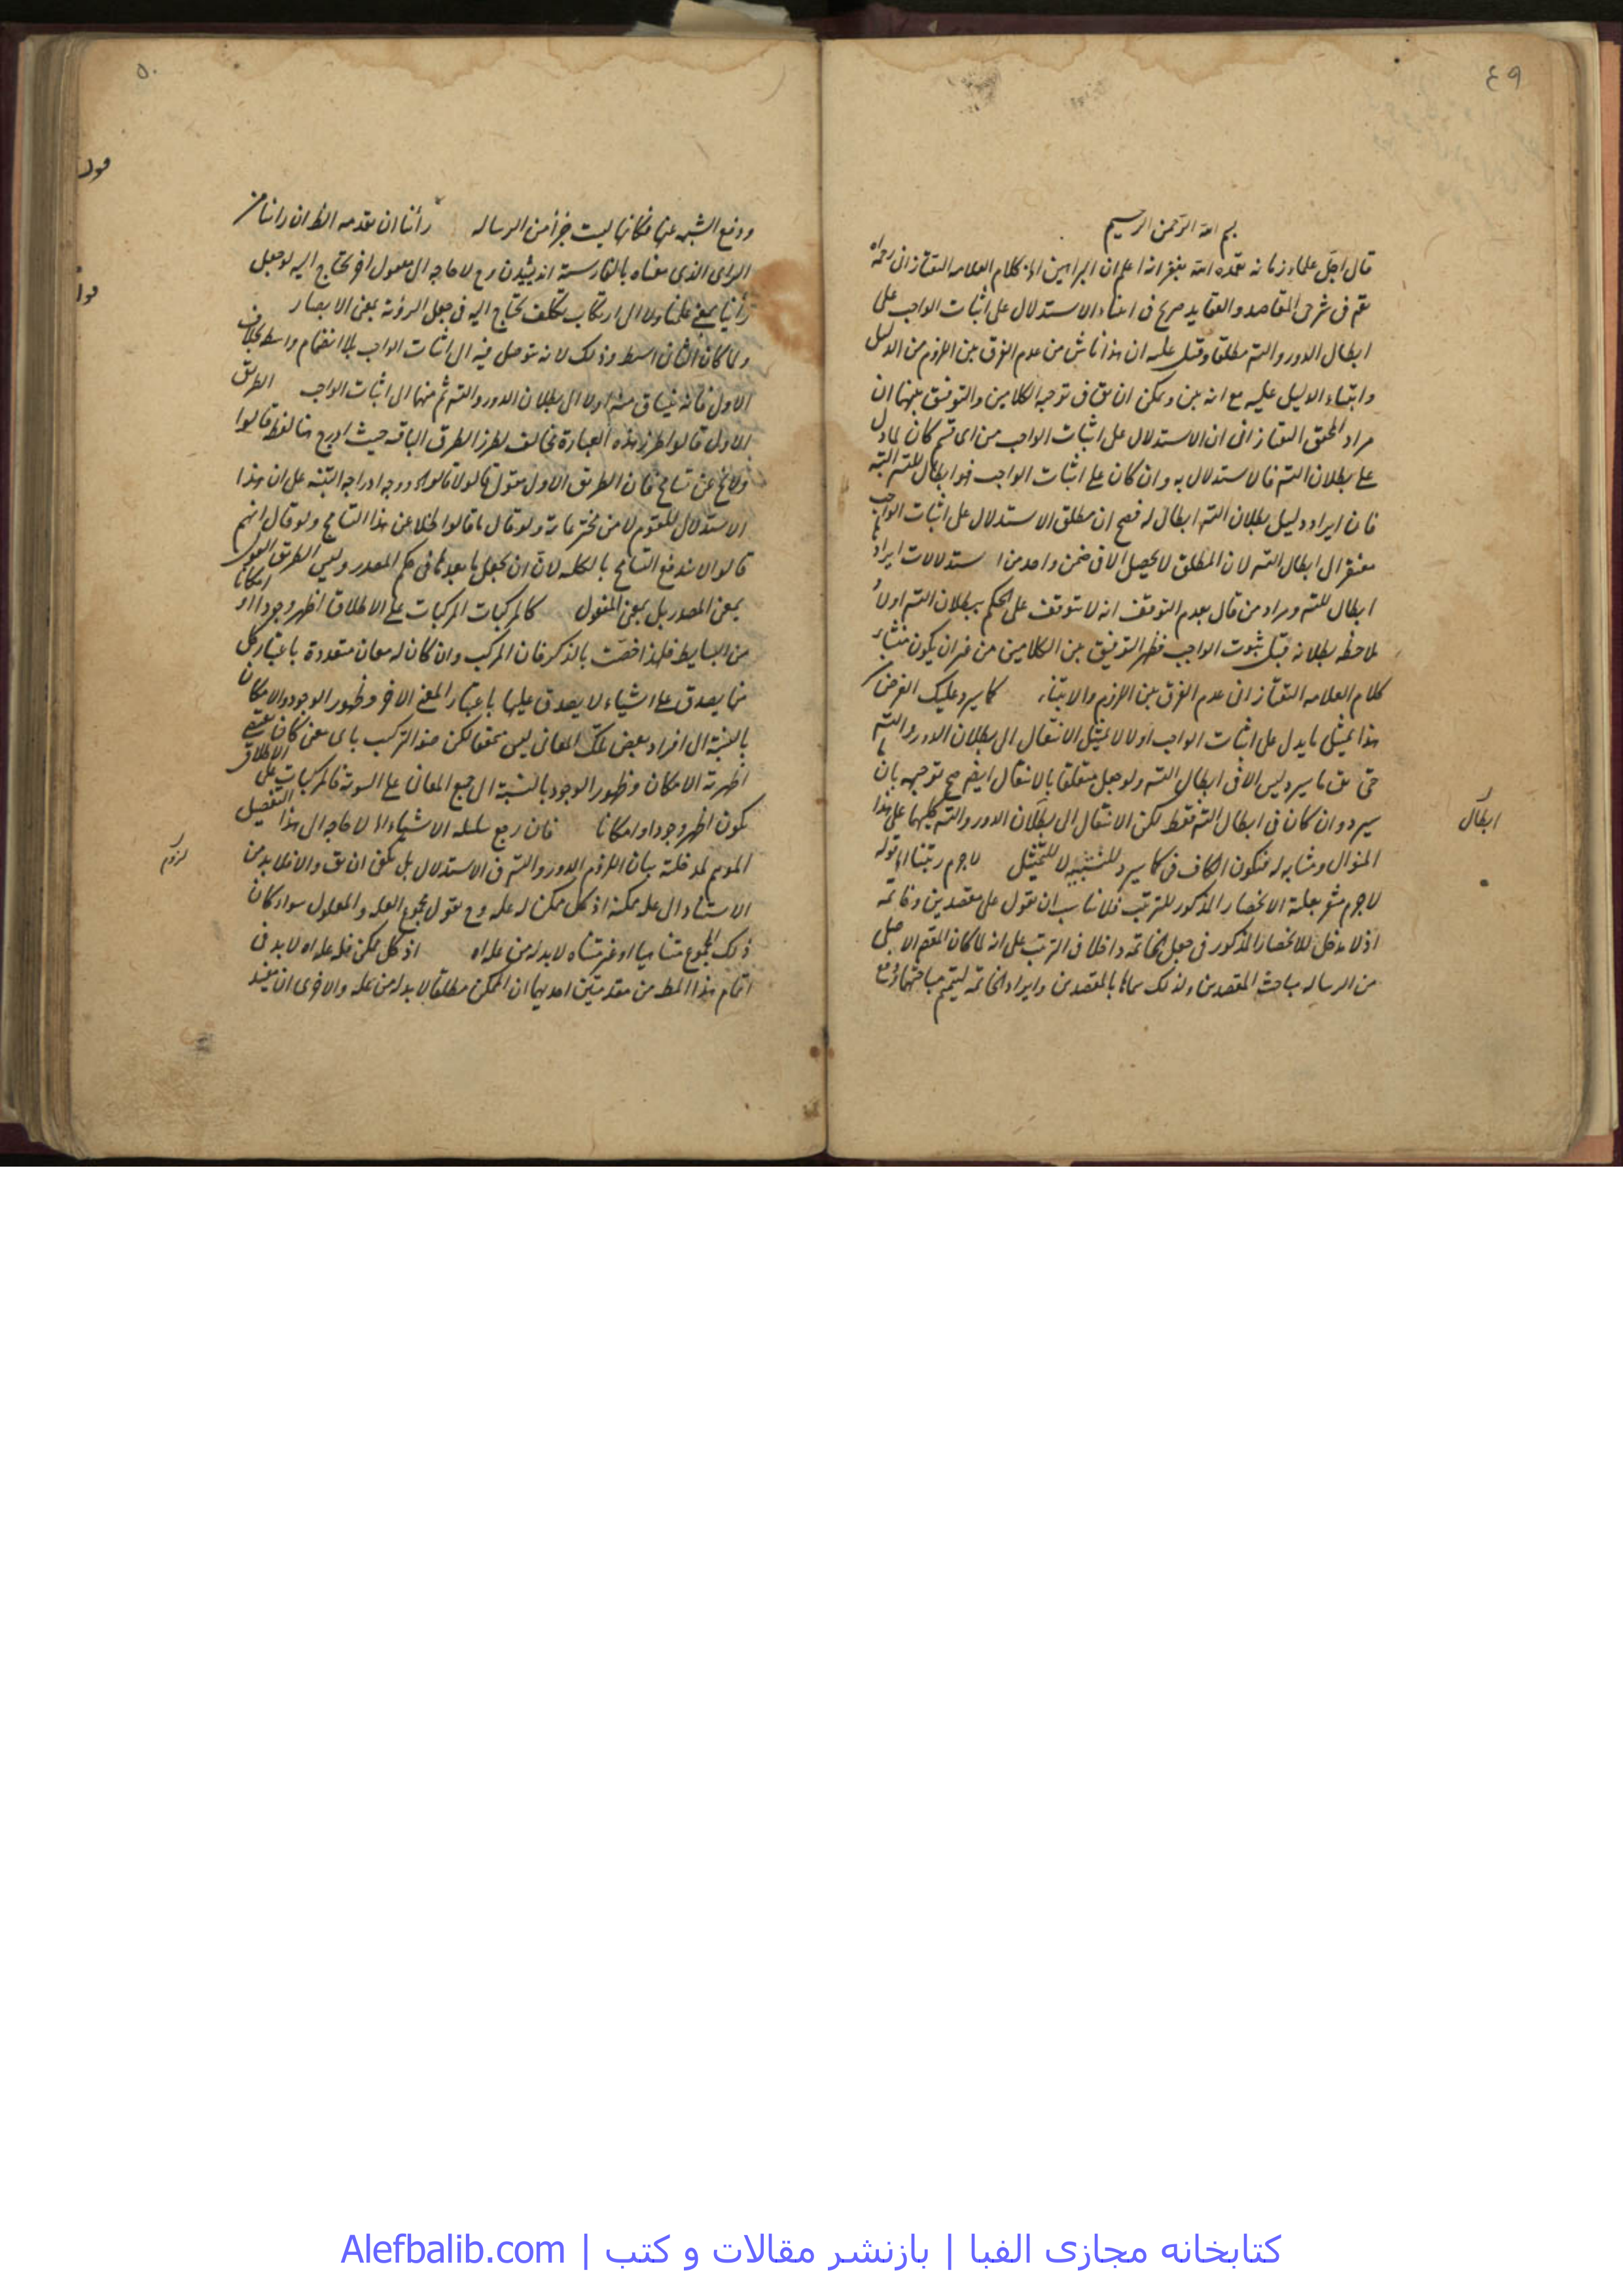 ٤٩
بسم الله الرحمن الرحيم
قال اجل علماء زمانه تغمده الله بغفرانه اعلم ان البراهين الخ كلام العلامه التفتازانى رحمه الله
فى شرحى المقاصد والعقايد صريح فى الاستدلال على اثبات الواجب على
ابطال الدور والتس مطلقا وقيل عليه ان هذا ناش من عدم الفرق بين اللزوم من الدليل
وابتناء الدليل عليه مع انه بين ويمكن ان يق فى توجيه الكلامين والتوفيق بينهما ان
مراد المحقق التفتازانى ان الاستدلال على اثبات الواجب من اى قسم كان لما دل
على بطلان التس فالاستدلال به وان كان على اثبات الواجب فهو ابطال للتس البته
فان ايراد دليل بطلان التس ابطال له فصح ان مطلق الاستدلال على اثبات الواجب
مفتقر الى ابطال التس لان المطلق لا يحصل الا فى ضمن واحد من استدلالات ايرادها
ابطال للتس ومراد من قال بعدم التوقف انه لا يتوقف على الحكم ببطلان التس اولا و
لملاحظه بطلانه قبل ثبوت الواجب فظهر التوفيق بين الكلامين من غير ان يكون منشاء
كلام العلامه التفتازانى عدم الفرق بين اللزوم والابتناء كما سيرد عليك الغرض
هذا تمثيل ما يدل على اثبات الواجب اولا لا تمثيل الانتقال الى بطلان الدور والتس
حتى يق ما سيرد ليس الا فى ابطال التس ولو جعل متعلقا بالانتقال ايضا صح توجيهه بان ما
سيرد وان كان فى ابطال التس فقط لكن الانتقال الى بطلان الدور والتس كليهما على هذا
المنوال ومشابه له فتكون الكاف فى كما سيرد للتشبيه لا للتمثيل لاجرم رتبنا الخ قوله
لاجرم مشعر بعلية الانحصار المذكور للترتيب فلا يناسب ان يقول على مقصدين وخاتمه
اذ لا مدخل للانحصار المذكور فى جعل الخاتمه داخلا فى الترتيب على انه لما كان المقصد الاصلى
من الرساله مباحث المقصدين ولذلك سماها بالمقصدين وايراد الخاتمه لتتميم مباحثهما
ابطال
٥٠
ودفع الشبهه عنها فكانها ليست جزأ من الرساله رأينا ان نقدمه الظ ان رأينا من
الراى الذى معناه بالفارسية انديشيدن وح لا حاجه الى مفعول اخر يحتاج اليه لو جعل
رأينا بمعنى علمنا ولا الى ارتكاب تكلف يحتاج اليه فى جعل الرؤية بمعنى الابصار
ولما كان الثانى ابسط وذلك لانه يتوصل فيه الى اثبات الواجب بلا انضمام واسطه بخلاف
الاول فانه ينساق منه اولا الى بطلان الدور والتس ثم منها الى اثبات الواجب الطريق
الاول قالوا طرز هذه العبارة تخالف لطرز الطرق الباقيه حيث ادرج هنا لفظ قالوا
ولا يخ عن تسامح فان الطريق الاول مقول قالوا لا قالوا ووجه ادراجه التنبيه على ان هذا
الاستدلال للقوم لا من مخترعاته ولو قال ما قالوا لخلا عن هذا التسامح ولو قال انهم
قالوا لاندفع التسامح بالكليه لان ان يجعل ما بعدها فى حكم المصدر وليس الطريق القول
بمعنى المصدر بل بمعنى المفعول كالمركبات المركبات على الاطلاق اظهر وجودا او امكانا
من البسايط فلهذا خصت بالذكر فان المركب وان كان له معان متعددة باعتبار كل
منها يصدق على اشياء لا يصدق عليها باعتبار المعنى الاخر وظهور الوجود والامكان
بالنسبة الى افراد بعض تلك المعانى ليس محققا لكن صفة التركيب باى معنى كان
اظهرية الامكان وظهور الوجود بالنسبة الى جميع المعانى على السوية فالمركبات على الاطلاق
يكون اظهر وجودا وامكانا فان رجع سلسله الاشياء الخ لا حاجه الى هذا التفصيل
الموهم لمدخلية بيان اللزوم الدور والتس فى الاستدلال بل يكفى ان يق والا فلا بد من
الاستناد الى علة ممكنة اذ كل ممكن له علة وح نقول مجموع العله والمعلول سواء كان
ذلك المجموع متناهيا او غير متناه لا بد له من علة اه اذ كل ممكن فله علة اه لا بد فى
اتمام هذا المط من مقدمتين احديهما ان الممكن مطلقا لا بد له من علة والاخرى ان يفيد
لزوم
كتابخانه مجازى الفبا | بازنشر مقالات و كتب | Alefbalib.com